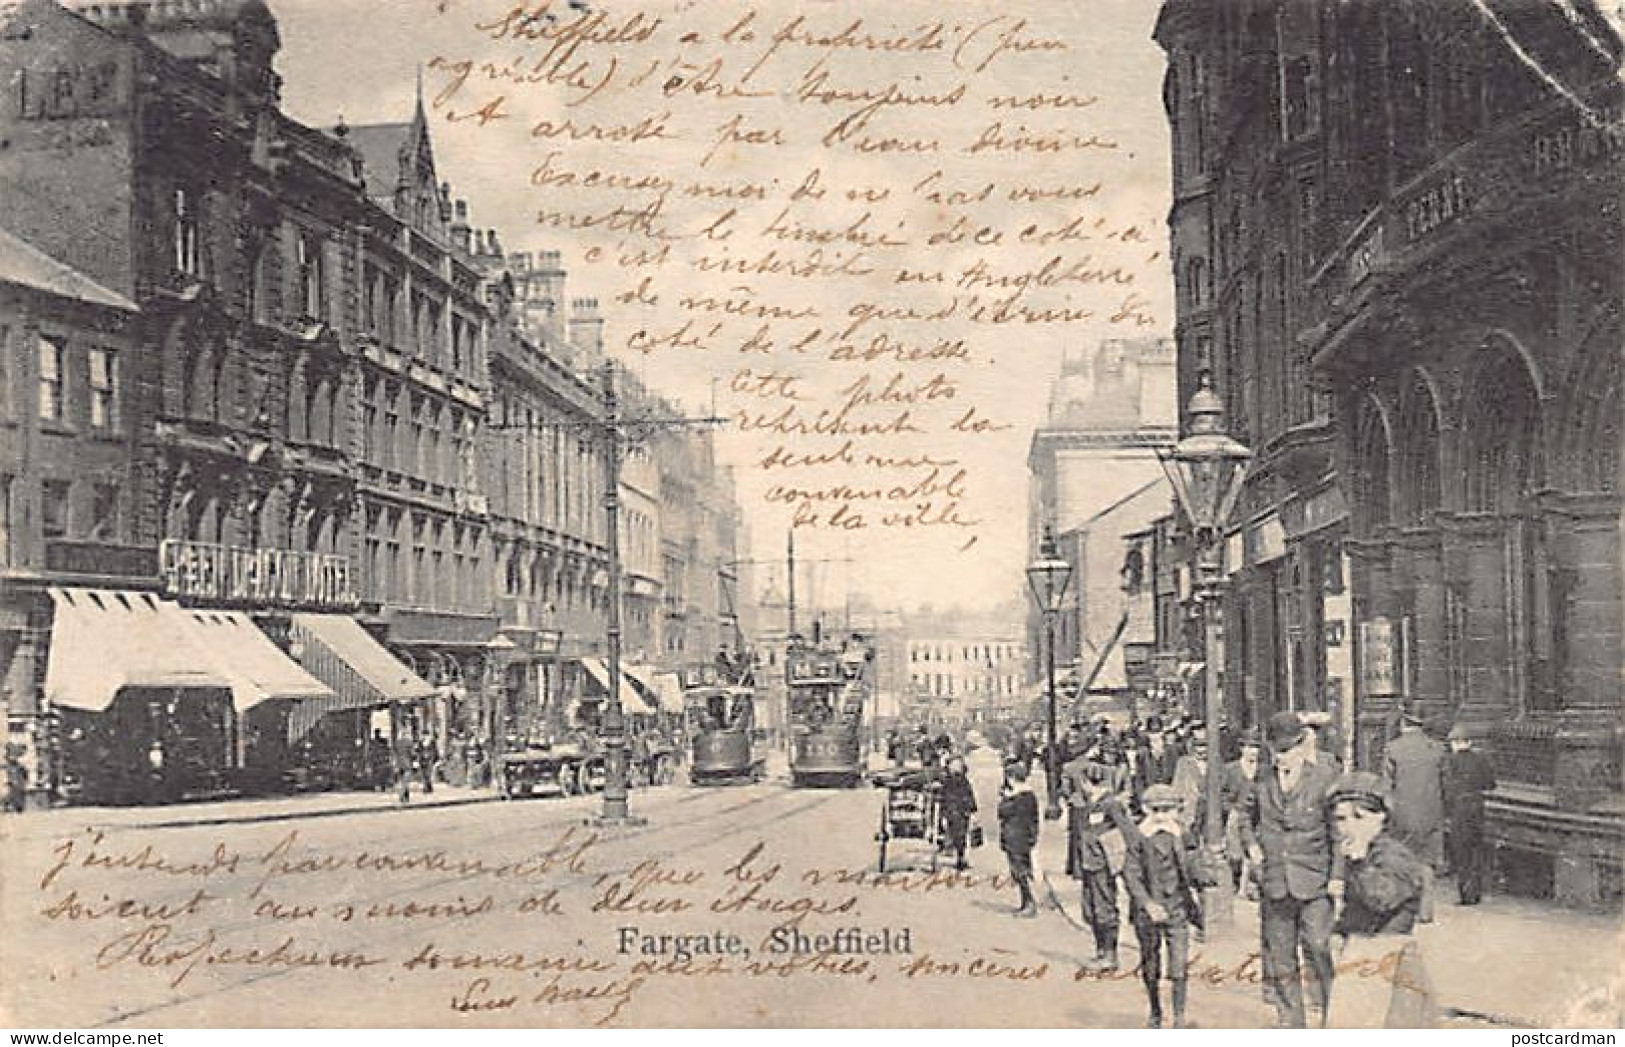 Sheffield a la propriété (peu
agréable) d'être toujours noir
et arrosé par l'eau divine.
Excusez moi de ne pas vous
mettre le timbre de ce coté-ci,
c'est interdit en Angleterre
de même que d'écrire du
coté de l'adresse.
Cette photo
représente la
seule rue
convenable
de la ville,
j'entends par convenable, que les maisons
soient au moins de deux étages.
Fargate, Sheffield
Respectueux souvenir aux votres, sincères
postcardman